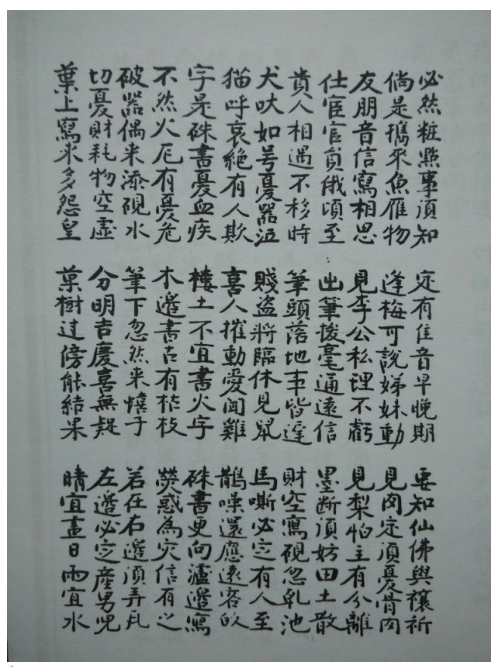 必然粧點事須知 定有佳音早晚期 要知仙佛與禳祈
倘是攜來魚雁物 逢梅可說娣妹動 見肉定須憂骨肉
友朋音信寫相思 見李公私理不虧 見梨怕主有分離
仕宦官員俄頃至 出筆撥毫通遠信 墨斷須妨田土散
貴人相遇不移時 筆頭落地事皆違 財空寫硯忽乾池
犬吠如号憂器泣 賤盜將臨休見鼠 馬嘶必定有人至
猫呼哀絕有人欺 喜人摧動愛聞雞 鵲噪還應遠客的
字是硃書憂血疾 樓土不宜書火字 硃書更向瀘邊寫
不然火厄有憂危 木邊書古有枯枝 熒惑為灾信有之
破器偶來添硯水 筆下忽然来憘子 若在右邊須弄瓦
切憂財耗物空虛 分明吉慶喜無疑 左邊必定產男兒
葉上寫來多怨皇 菓樹过傍能結果 晴宜畫日雨宜水